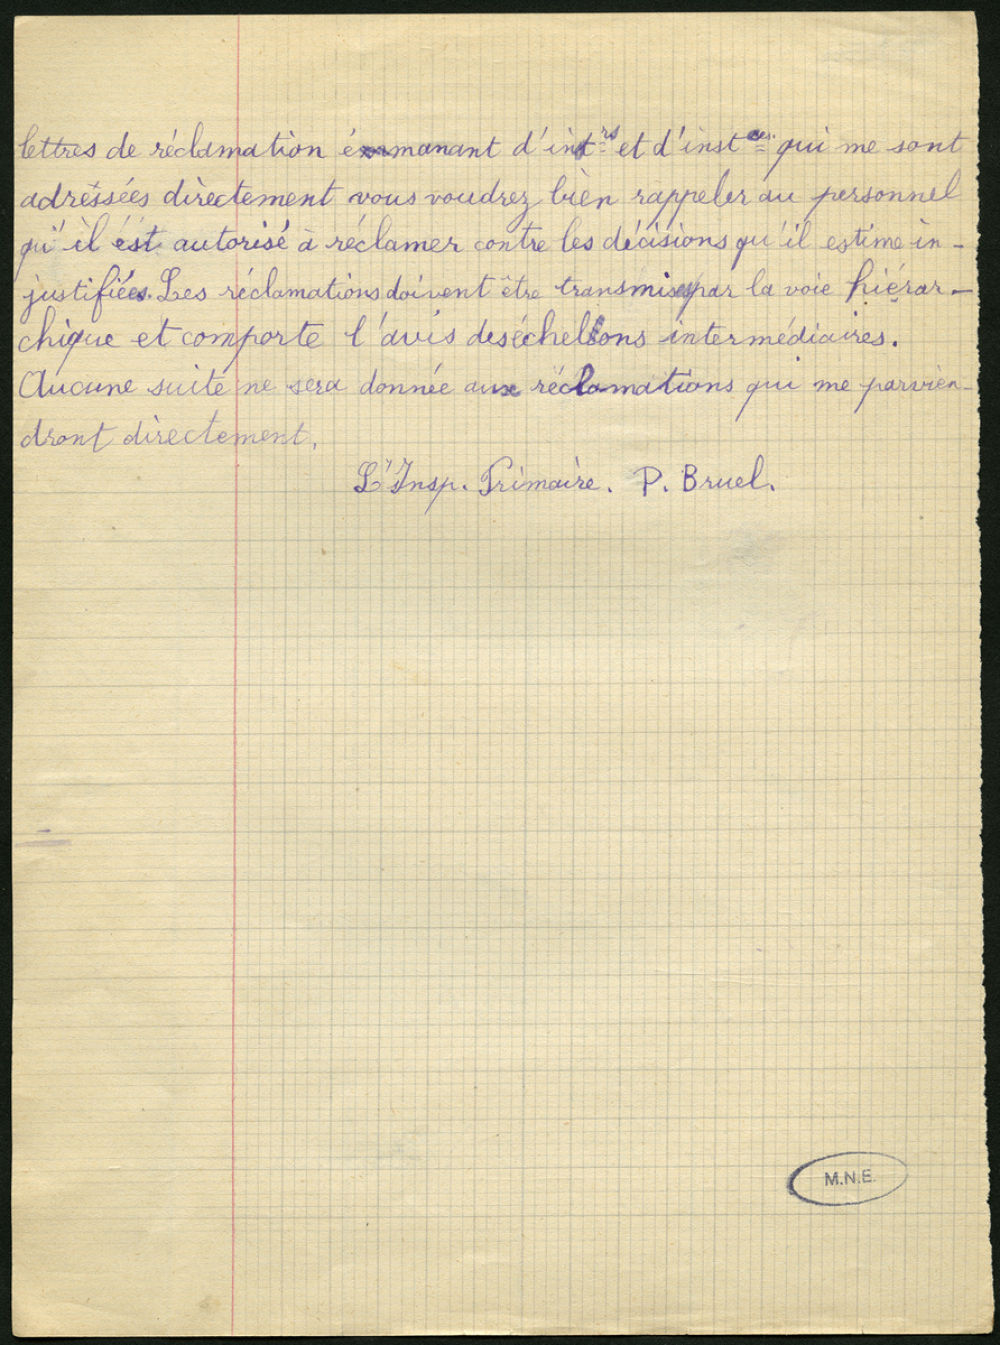 lettres de réclamation émanant d'int.rs et d'inst.ces qui me sont
adressées directement vous voudrez bien rappeler au personnel
qu'il est autorisé à réclamer contre les décisions qu'il estime in-
justifiées. Les réclamations doivent être transmises par la voie hiérar-
chique et comporte l'avis des échelons intermédiaires.
Aucune suite ne sera donnée aux réclamations qui me parvien-
dront directement.
L'Insp. Primaire. P. Bruel.
M.N.E.